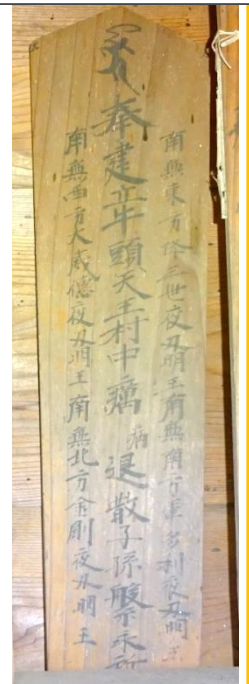 南無東方降三世夜叉明王南無南方軍多利夜叉明王
奉建立牛頭天王村中癘病退散子孫繁永所
南無西方大威徳夜叉明王南無北方金剛夜叉明王